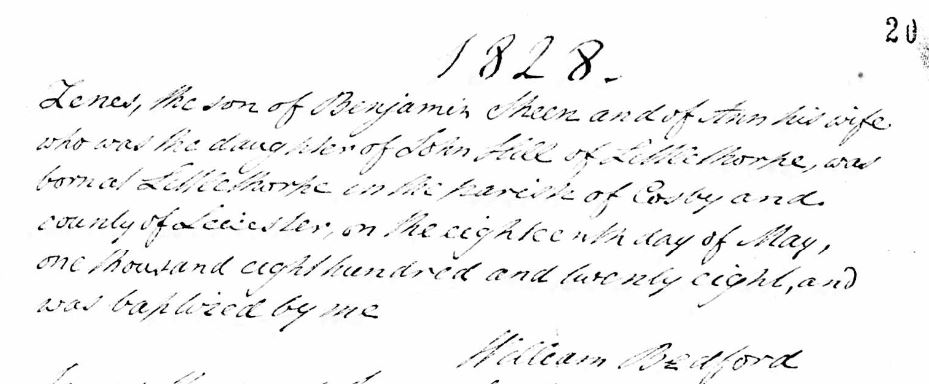 20
1828.
Zenes, the son of Benjamin Sheen and of Ann his wife
who was the daughter of John Hill of Littlethorpe, was
born at Littlethorpe in the parish of Cosby and
county of Leicester, on the eighteenth day of May,
one thousand eight hundred and twenty eight, and
was baptized by me
William Bedford